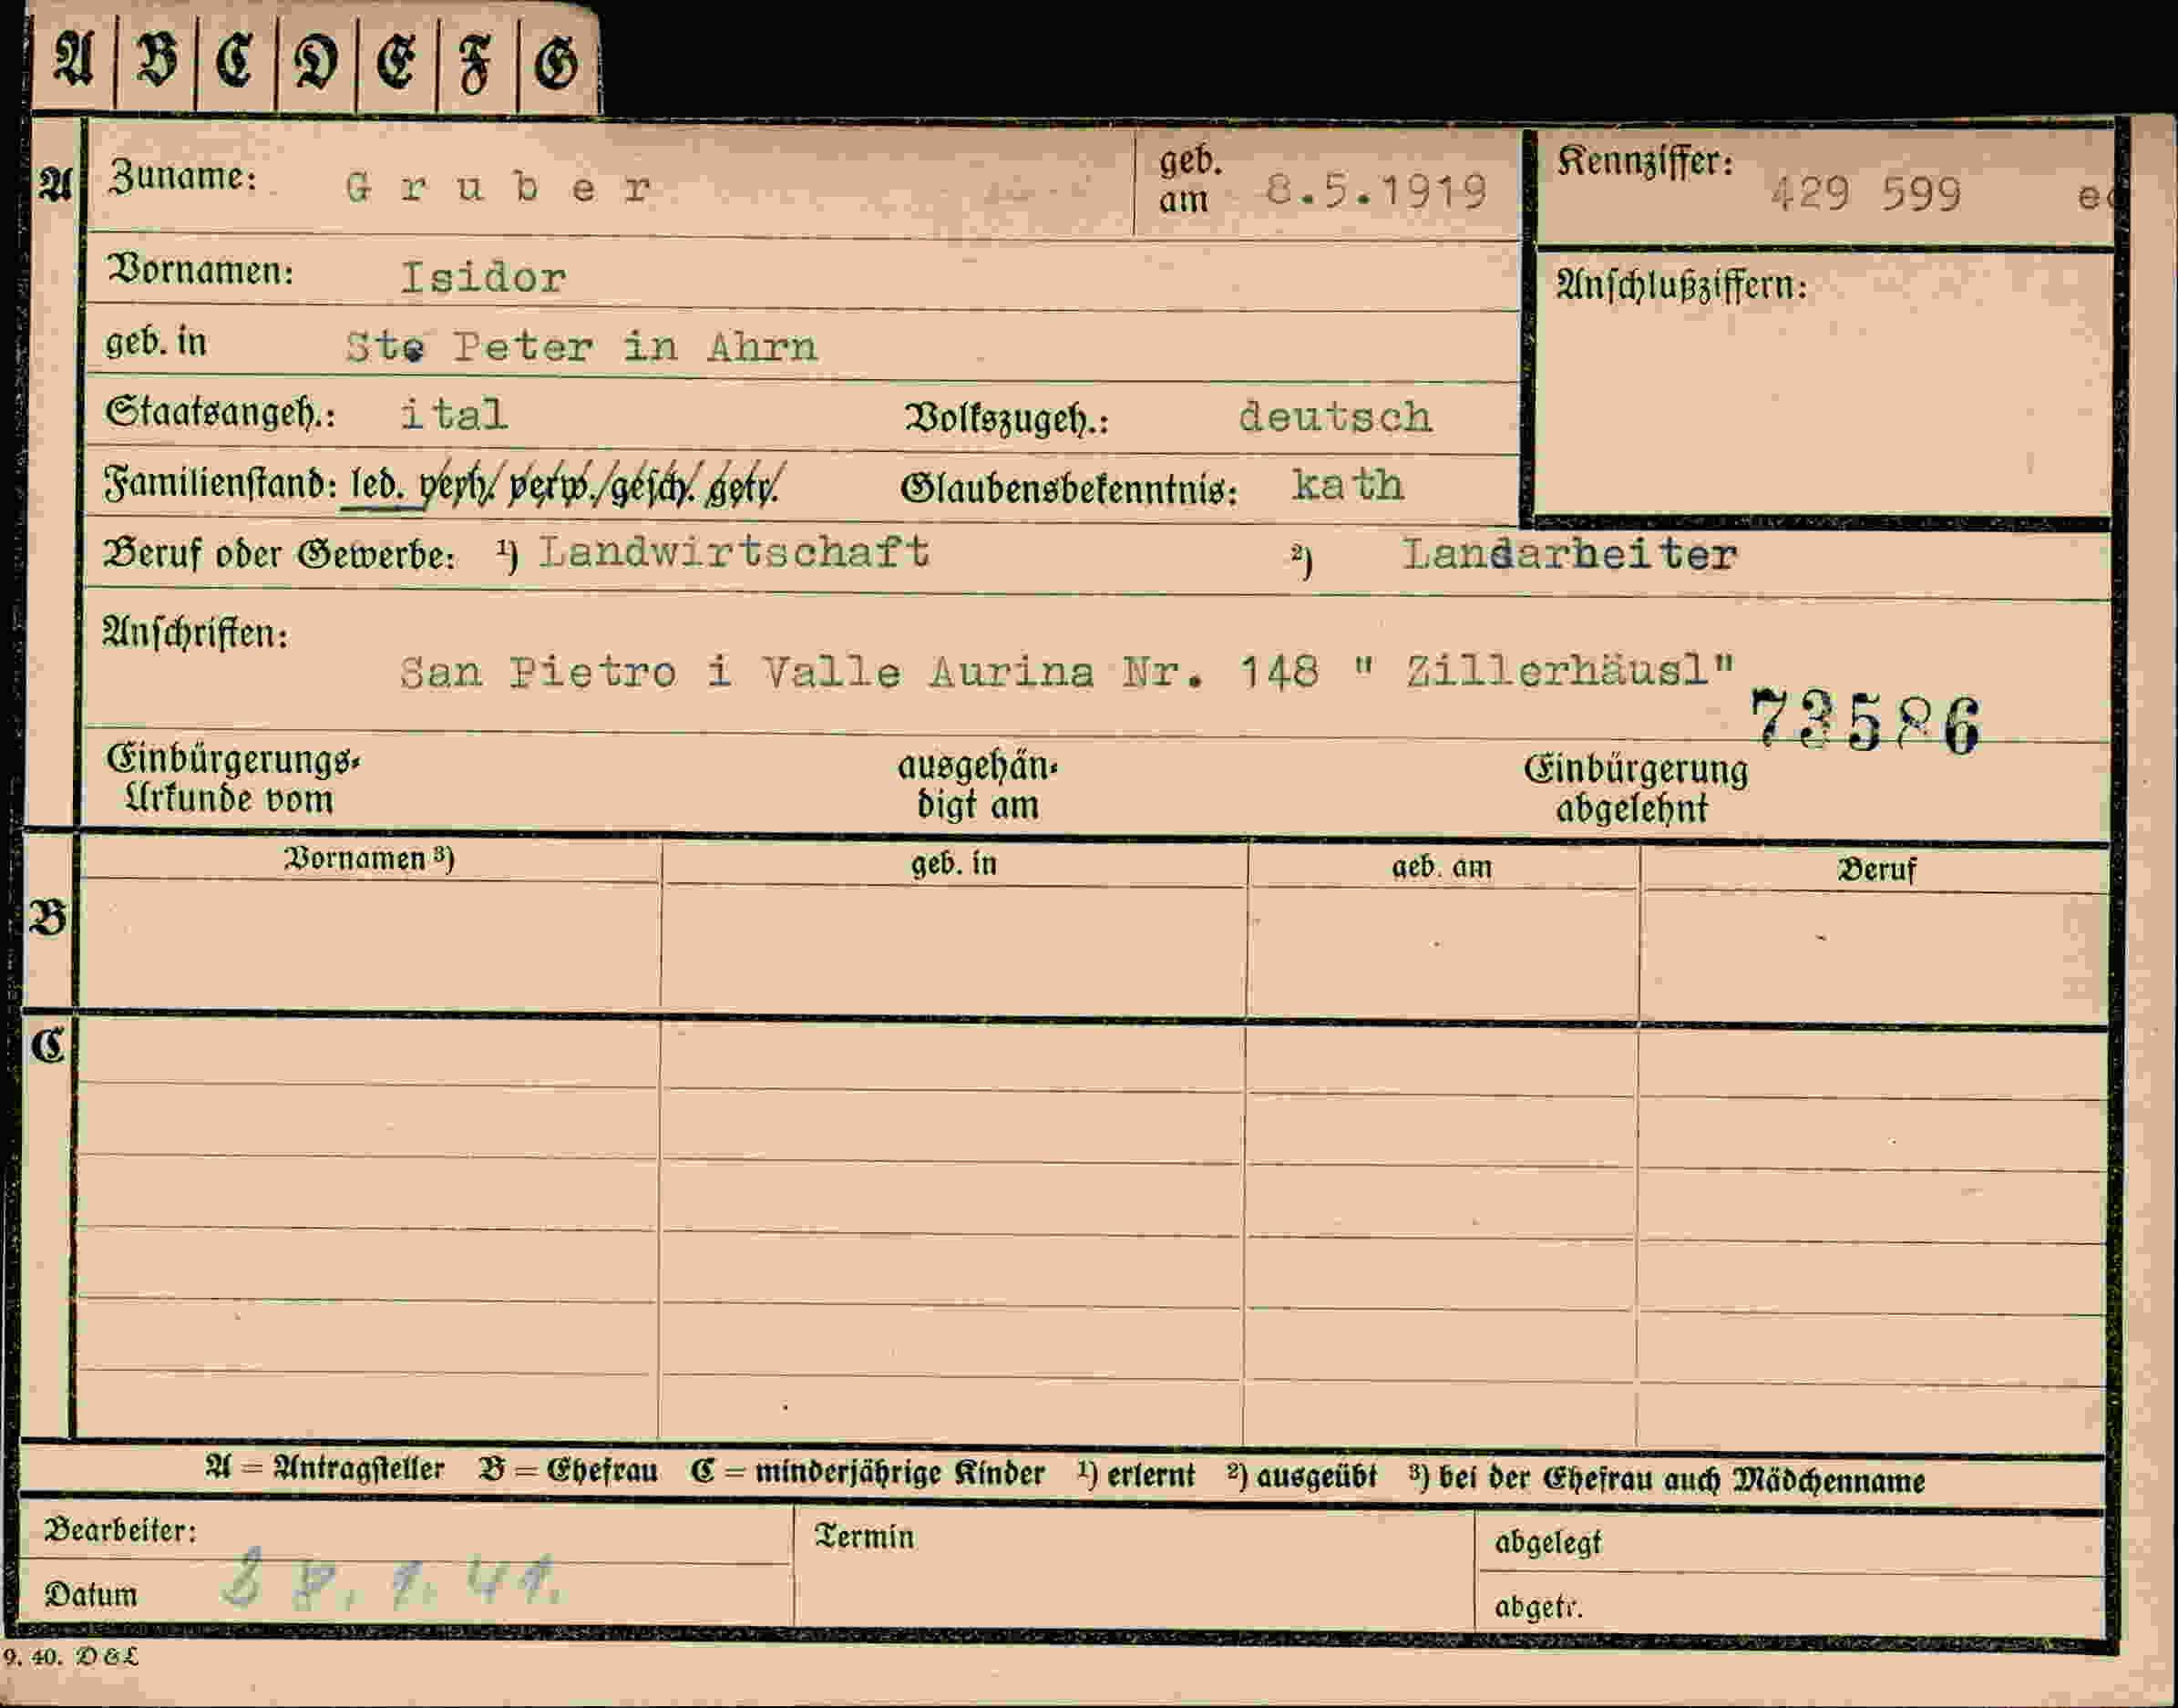 A B C D E F G
A Zuname: Gruber geb. am 8.5.1919 Kennziffer: 429 599
Vornamen: Isidor Anschlußziffern:
geb. in Ste Peter in Ahrn
Staatsangeh.: ital Volkszugeh.: deutsch
Familienstand: led. verh. verw. gesch. getr. Glaubensbekenntnis: kath
Beruf oder Gewerbe: ¹) Landwirtschaft ²) Landarbeiter
Anschriften:
San Pietro i Valle Aurina Nr. 148 " Zillerhäusl"
73586
Einbürgerungs- Urkunde vom ausgehän- digt am Einbürgerung abgelehnt
Vornamen ³) geb. in geb. am Beruf
B
C
A = Antragsteller B = Ehefrau C = minderjährige Kinder ¹) erlernt ²) ausgeübt ³) bei der Ehefrau auch Mädchenname
Bearbeiter: Termin abgelegt
Datum abgetr.
9. 40. D & L